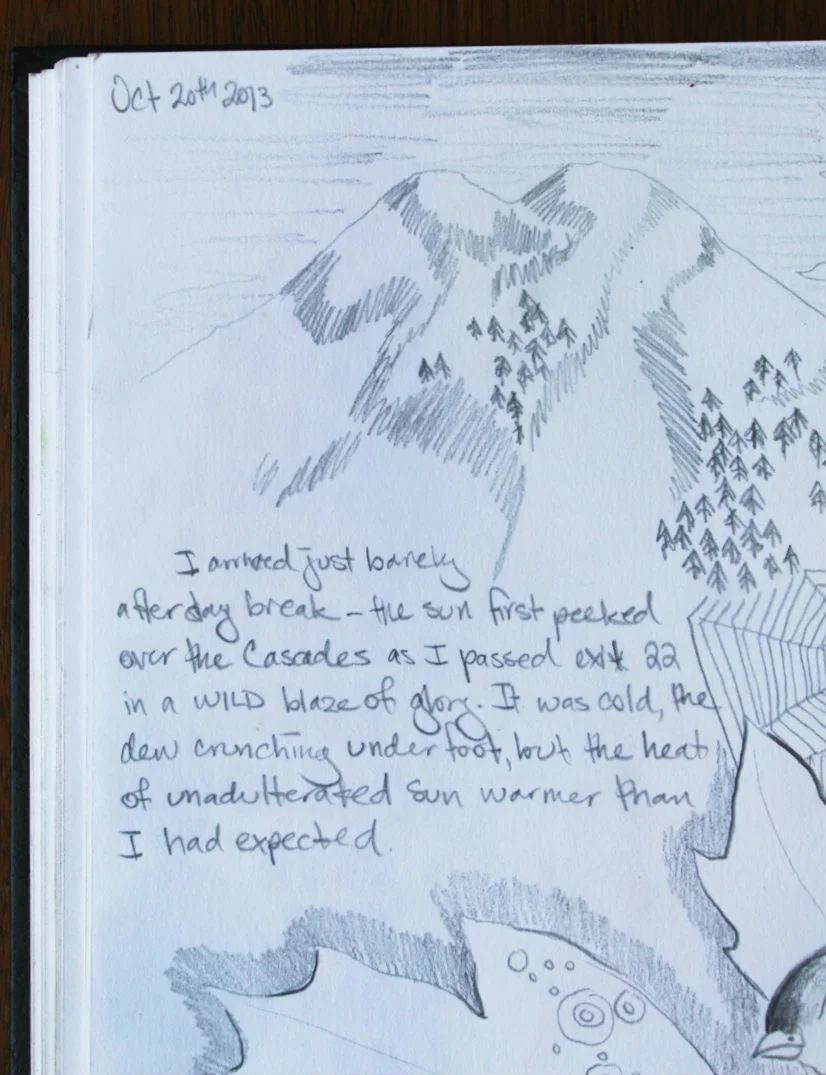 Oct 20th 2013
I arrived just barely
after day break - the sun first peeked
over the Cascades as I passed exit 22
in a WILD blaze of glory. It was cold, the
dew crunching under foot, but the heat
of unadulterated sun warmer than
I had expected.